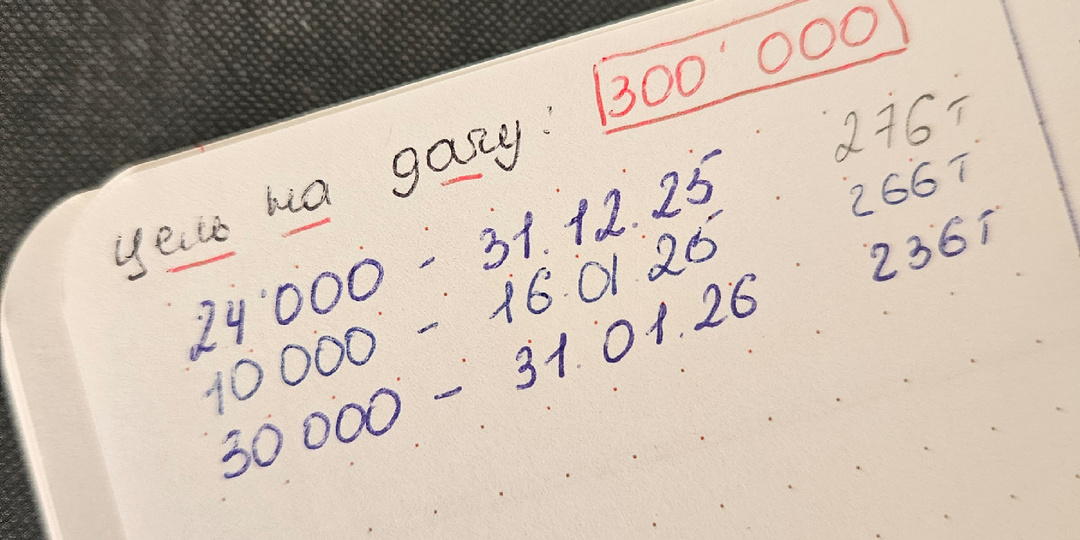 цель на дачу: 300'000
24'000 - 31.12.25 276т
10 000 - 16.01 26 266т
30 000 - 31.01.26 236т